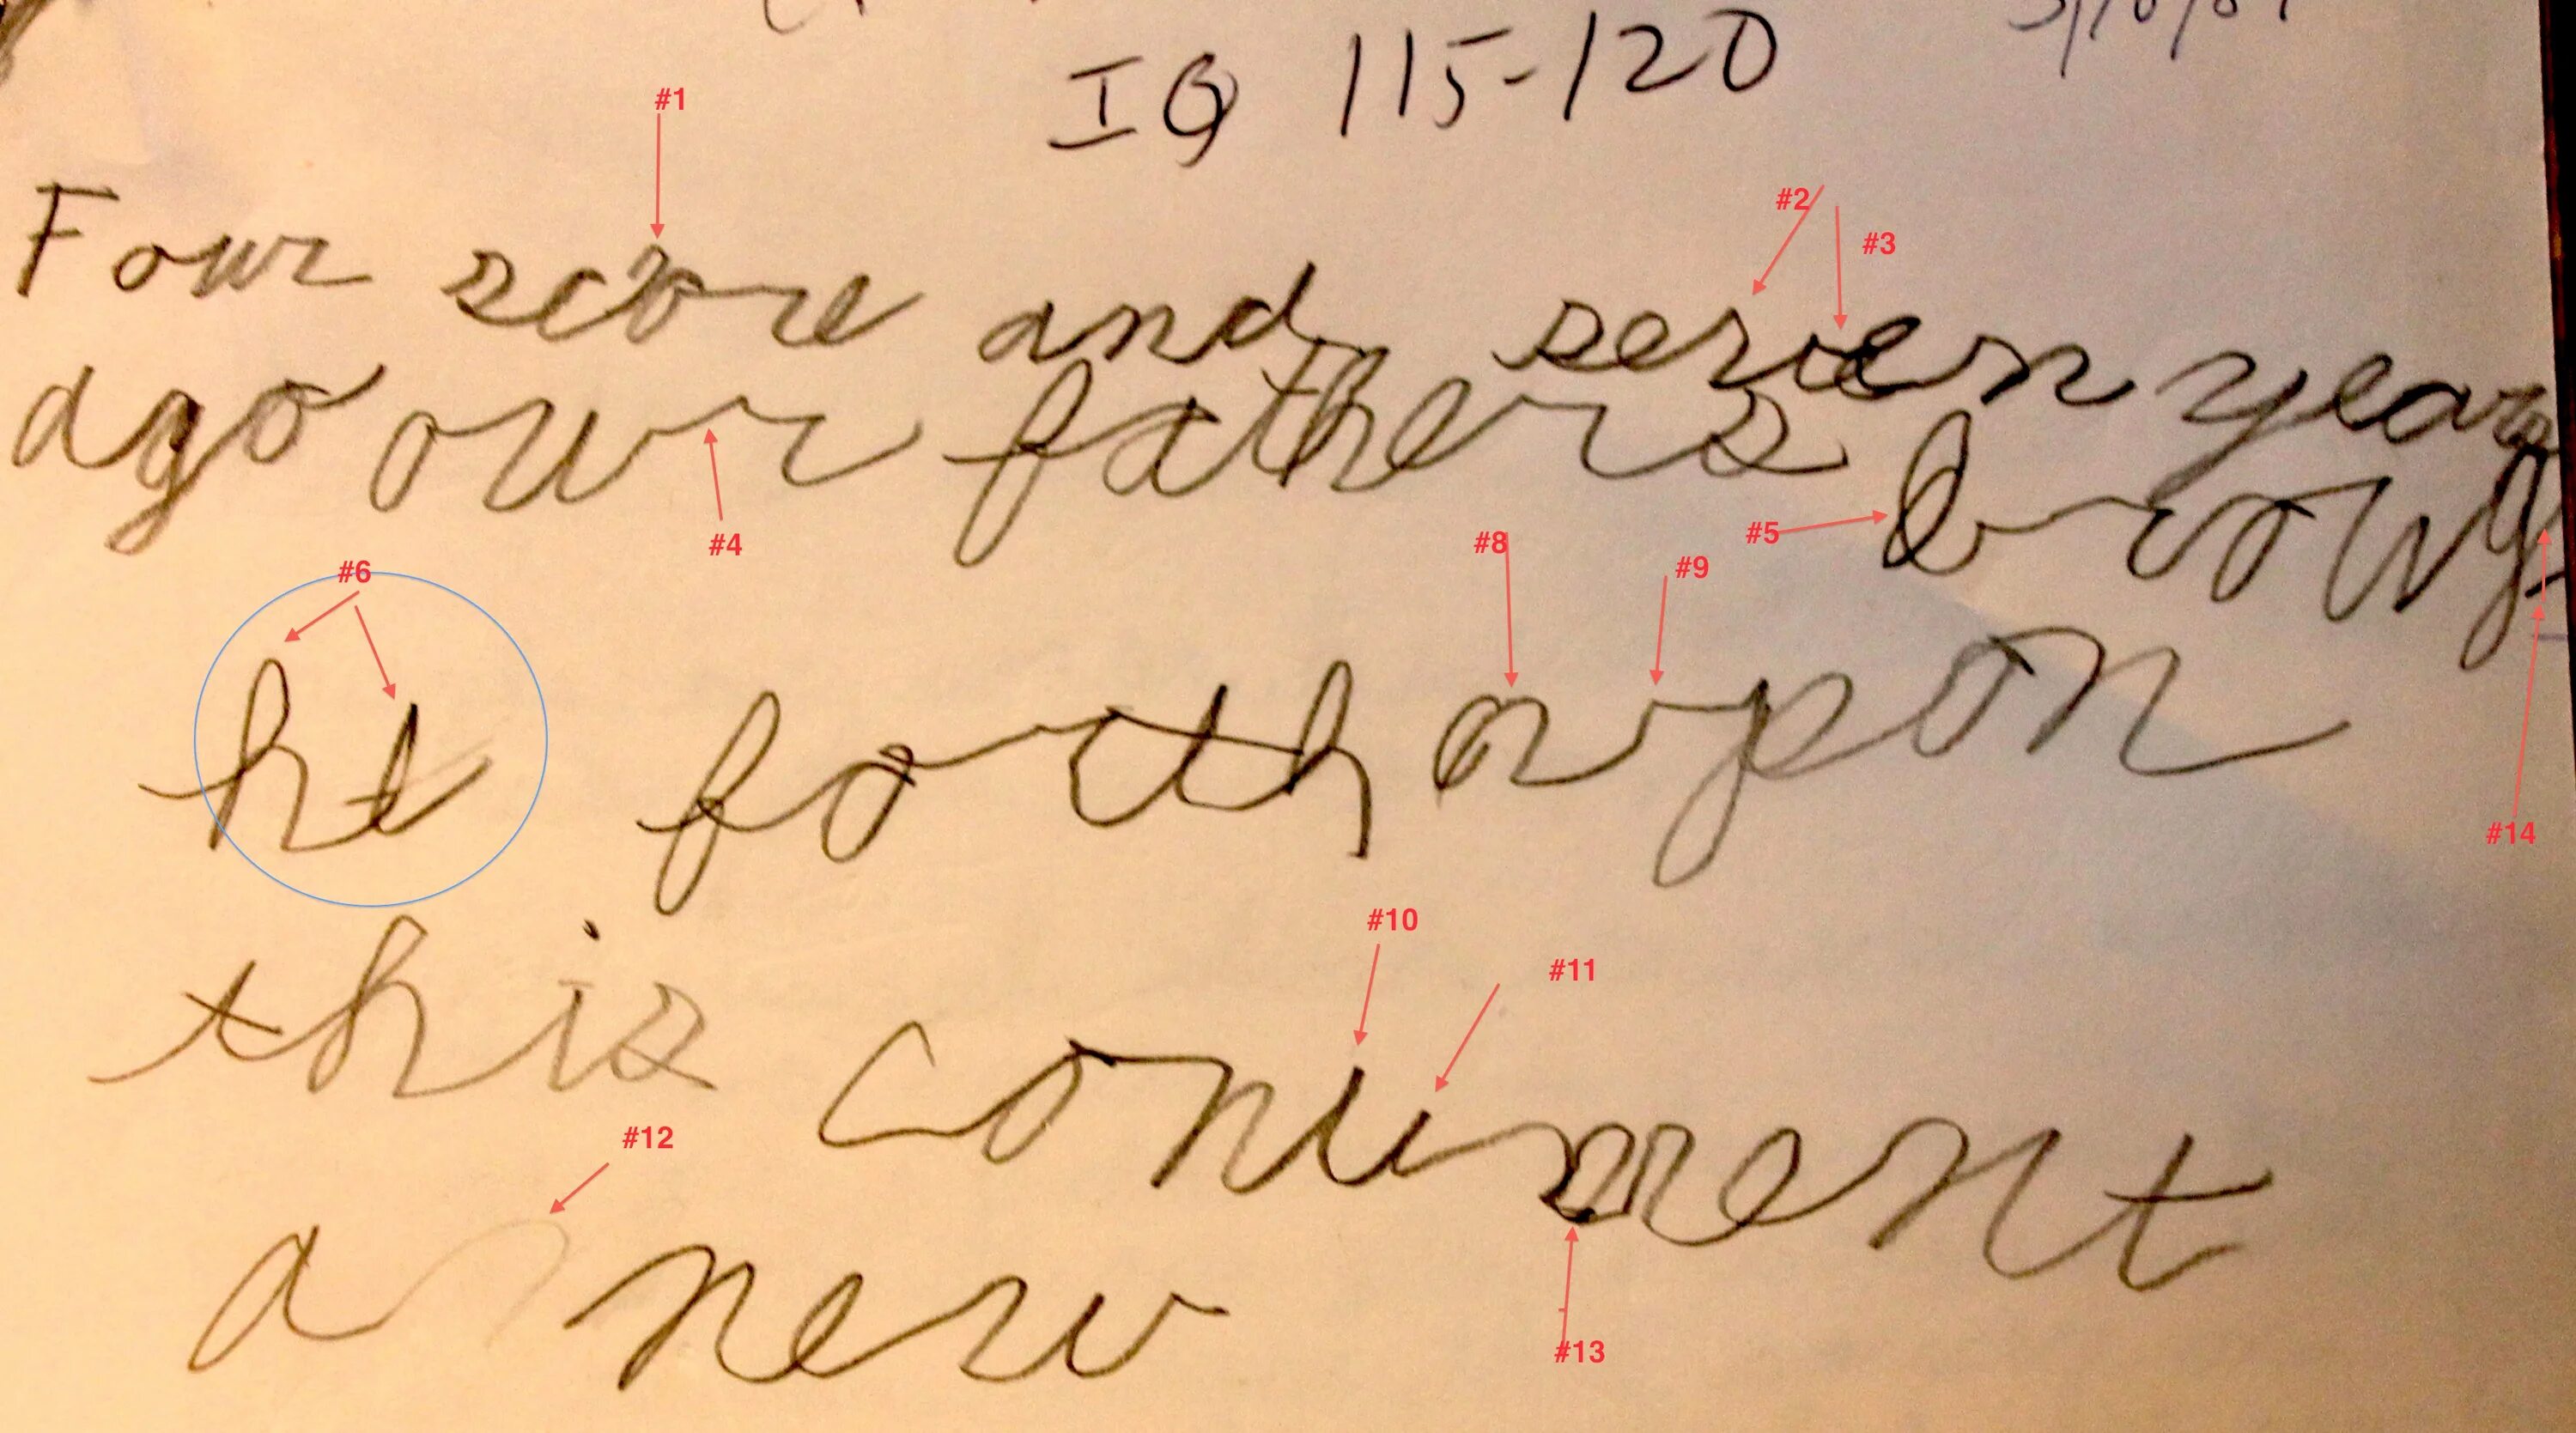 IQ 115-120
#1
#2
#3
Four score and seven years
ago our fathers broug
#4
#5
#8
#9
#6
ht forth upon
#14
#10
this
#11
#12
continent
#13
a new